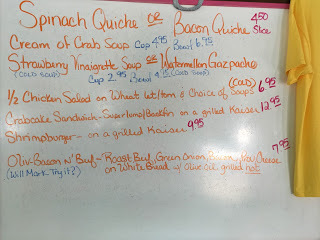 Spinach Quiche or Bacon Quiche 4.50 Slice
Cream of Crab Soup Cup 4.95 Bowl 6.95
Strawberry Vinaigrette Soup or Watermellon Gazpacho
(COLD SOUP) Cup 2.95 Bowl (COLD SOUP)
(COLD)
1/2 Chicken Salad on Wheat let/tom & Choice of Soup 6.95
Crabcake Sandwich - Super lump/Backfin on a grilled Kaiser 12.95
Shrimpburger - on a grilled Kaiser 9.95
Oliv-Bacon N' Beef - Roast Beef, Green Onion, Bacon, Prov Cheese 7.95
(Will Mark Try it?) on White Bread w/ Olive Oil grilled hot